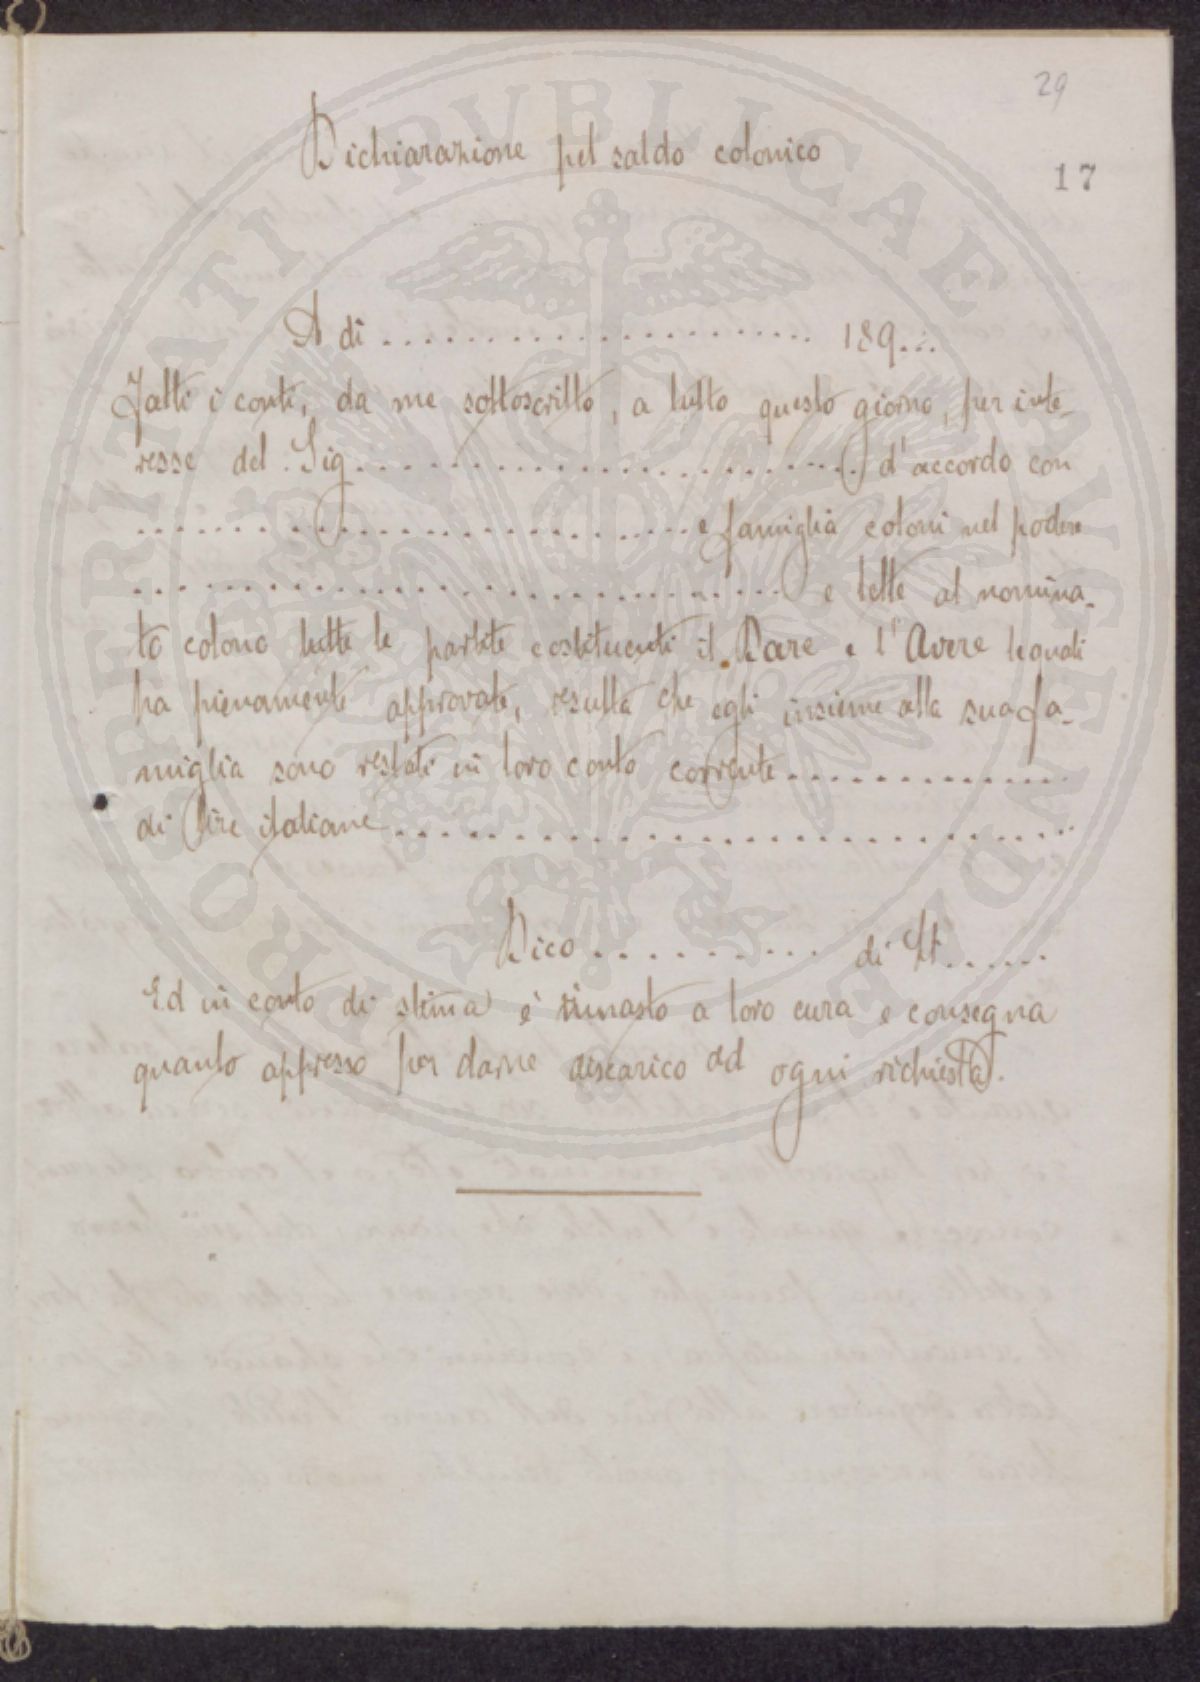 29
17
Dichiarazione pel saldo colonico
A dì ........................ 189...
Fatti i conti, da me sottoscritto, a tutto questo giorno, per inte-
resse del Sig. ........................ d'accordo con
........................ e famiglia coloni nel podere
........................ e lette al nomina-
to colono tutte le partite costituenti il Dare e l'Avere le quali
ha pienamente approvate, resulta che egli insieme alla sua fa-
miglia sono restati in loro conto corrente ............
di Lire italiane ........................
Dico .......... di £t ......
Ed in conto di stima è rimasto a loro cura e consegna
quanto appresso per darne discarico ad ogni richiesta.
PROSPERITATI PVBLICAE AVGENDAE